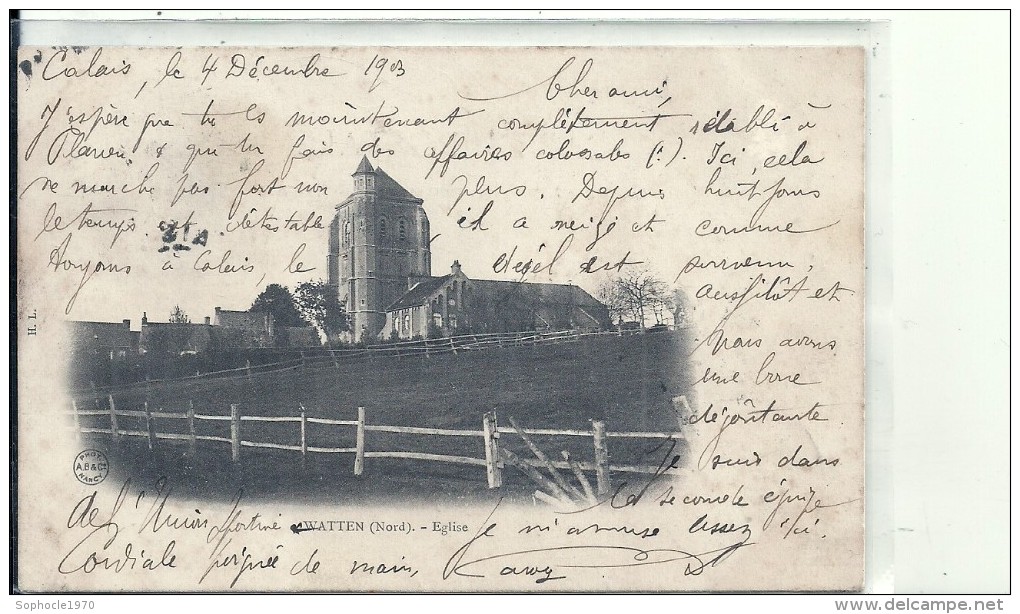 Calais, le 4 Décembre 1903
Cher ami,
J'espère que tu es maintenant complètement rétabli à
& que tu fais des affaires colossales (?). Ici, cela
ne marche pas fort non plus. Depuis huit jours
le temps est détestable il a neigé et comme
voyons à Calais, le dégel est survenu
aussitôt et
nous avons
une boue
dégoûtante.
Je suis dans
la seconde équipe
de l'Union Sportive Je m'amuse assez ici.
Cordiale poignée de main,
H. L.
PHOT
A.B & Cie
NANCY
WATTEN (Nord). - Eglise
Sophocle1970
delcampe.net